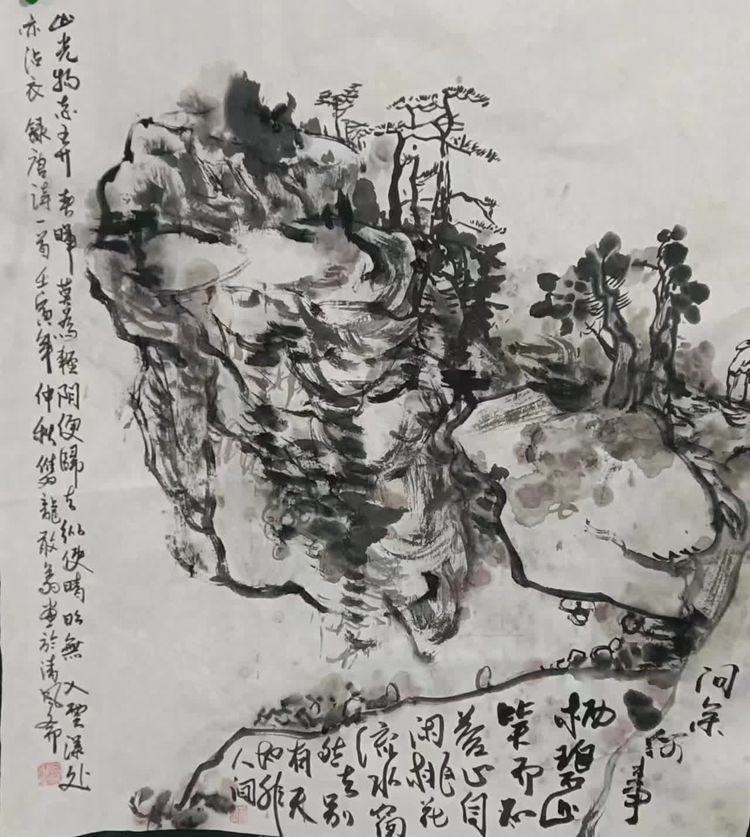 山光物态弄春晖莫為輕阴便歸去纵使晴明無入雲深处
亦沾衣録唐诗一首壬寅年仲秋雙龍散翁画於清风斋
问余
何事
栖碧山
笑而不
荅心自
闲桃花
流水窅
然去别
有天
地非
人间